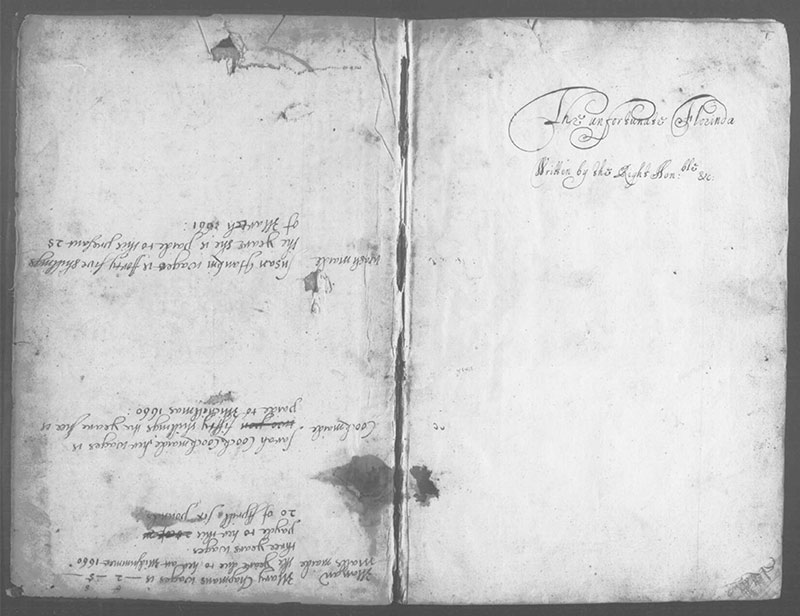 The unfortunate Florinda
Written by the Right Hon:ble &c.
Mary Chapmans wages is — 2 — 5 —
maide the yeare due to her at Midsummer 1660
three yeares wages
payde to her this
20 of Aprill six pounds
Sarah Cock Cookmaide her wages is
Cookmaide. fifty shillings the yeare shee is
paide to Michellmas 1660:
Wash maide Susan Hankin wages is forty five shillings
the yeare she is paide to this present 25
of March 1661: